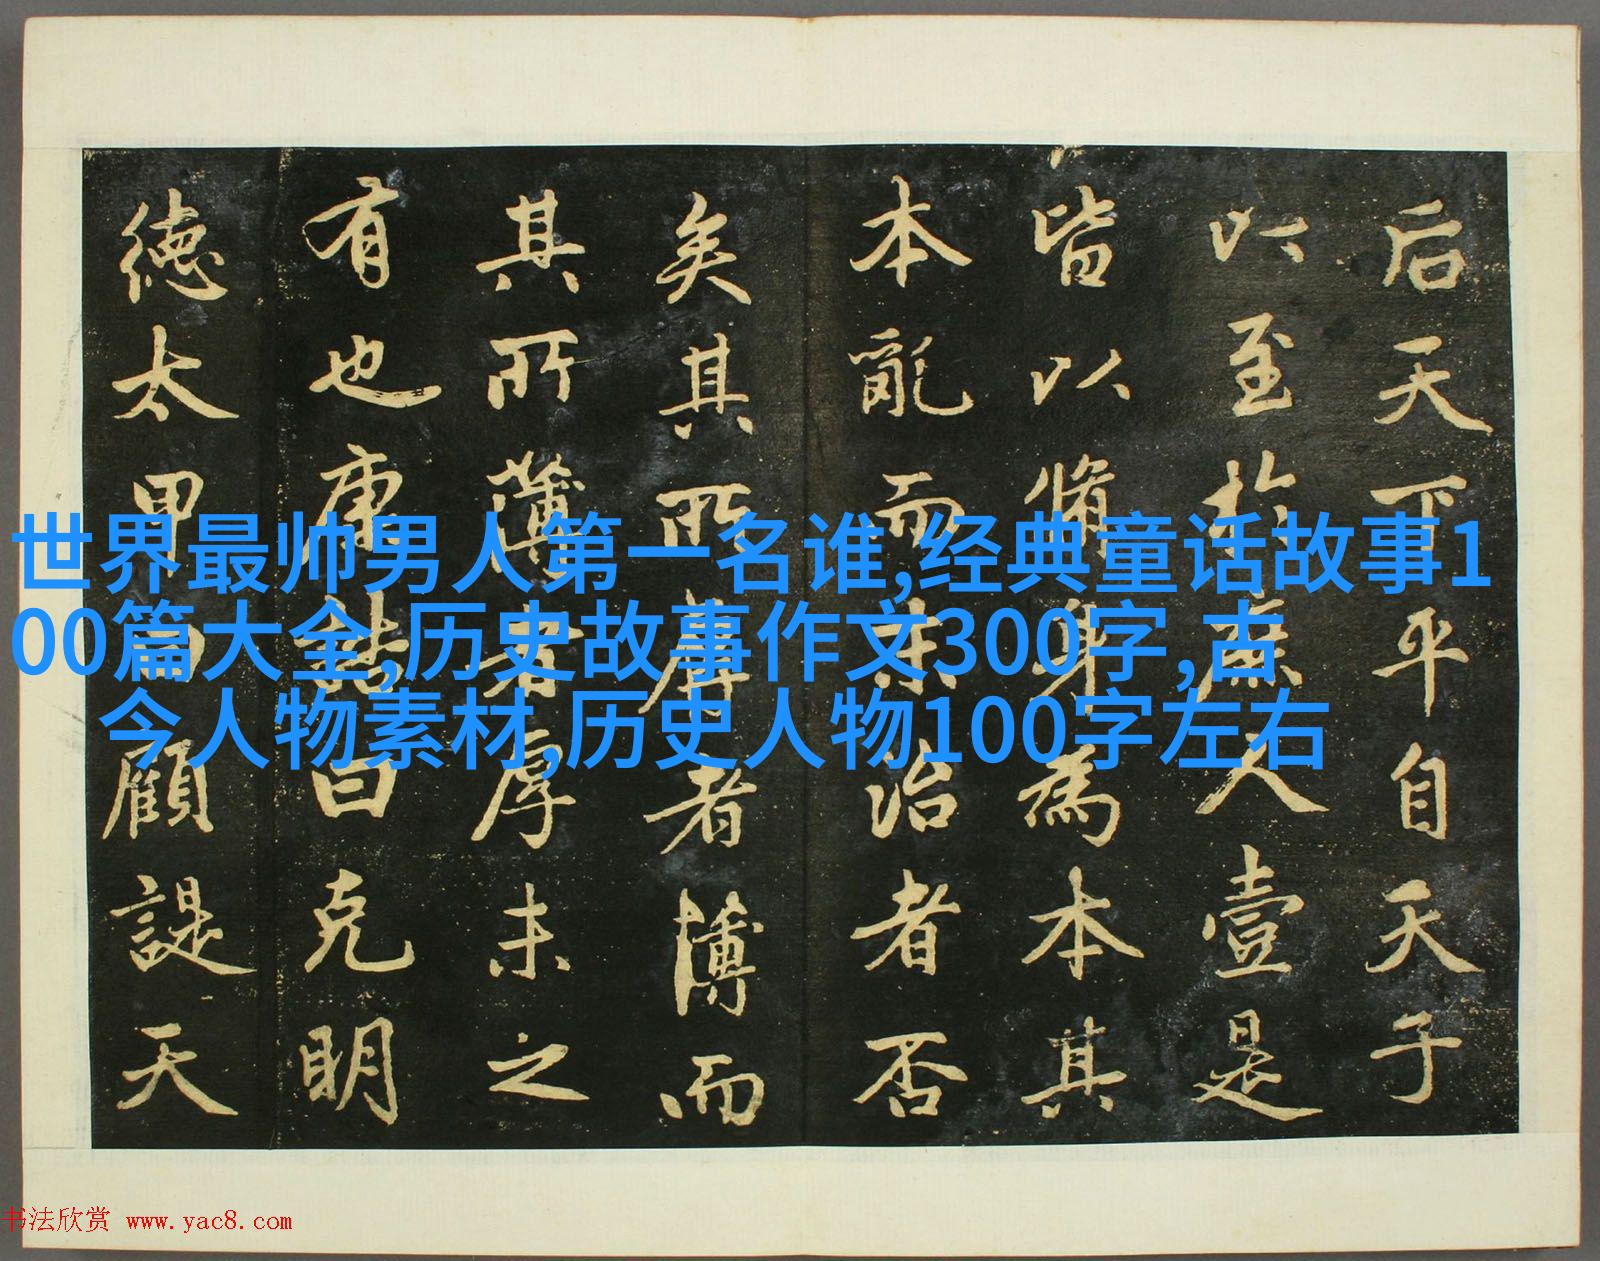 后天下平自天子
以至於庶人壹是
皆以脩身為本其
本亂而末治者否
矣其所厚者薄而
其所薄者厚未之
有也康誥曰克明
德太甲曰顧諟天
世界最帅男人第一名谁,经典童话故事1
00篇大全,历史故事作文300字,古
今人物素材,历史人物100字左右
书法欣赏 www.yac8.com